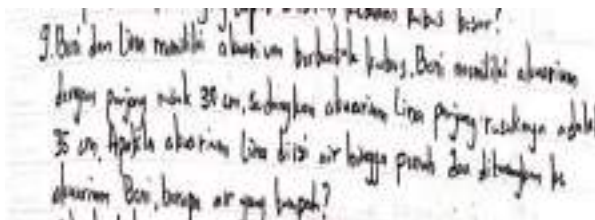 kubus besar?
9. Boni dan Lina memiliki akuarium berbentuk kubus. Boni memiliki akuarium
dengan panjang rusuk 30 cm, sedangkan akuarium Lina panjang rusuknya adalah
35 cm. Apabila akuarium Lina diisi air hingga penuh dan dituangkan ke
akuarium Boni, berapa air yang tumpah?